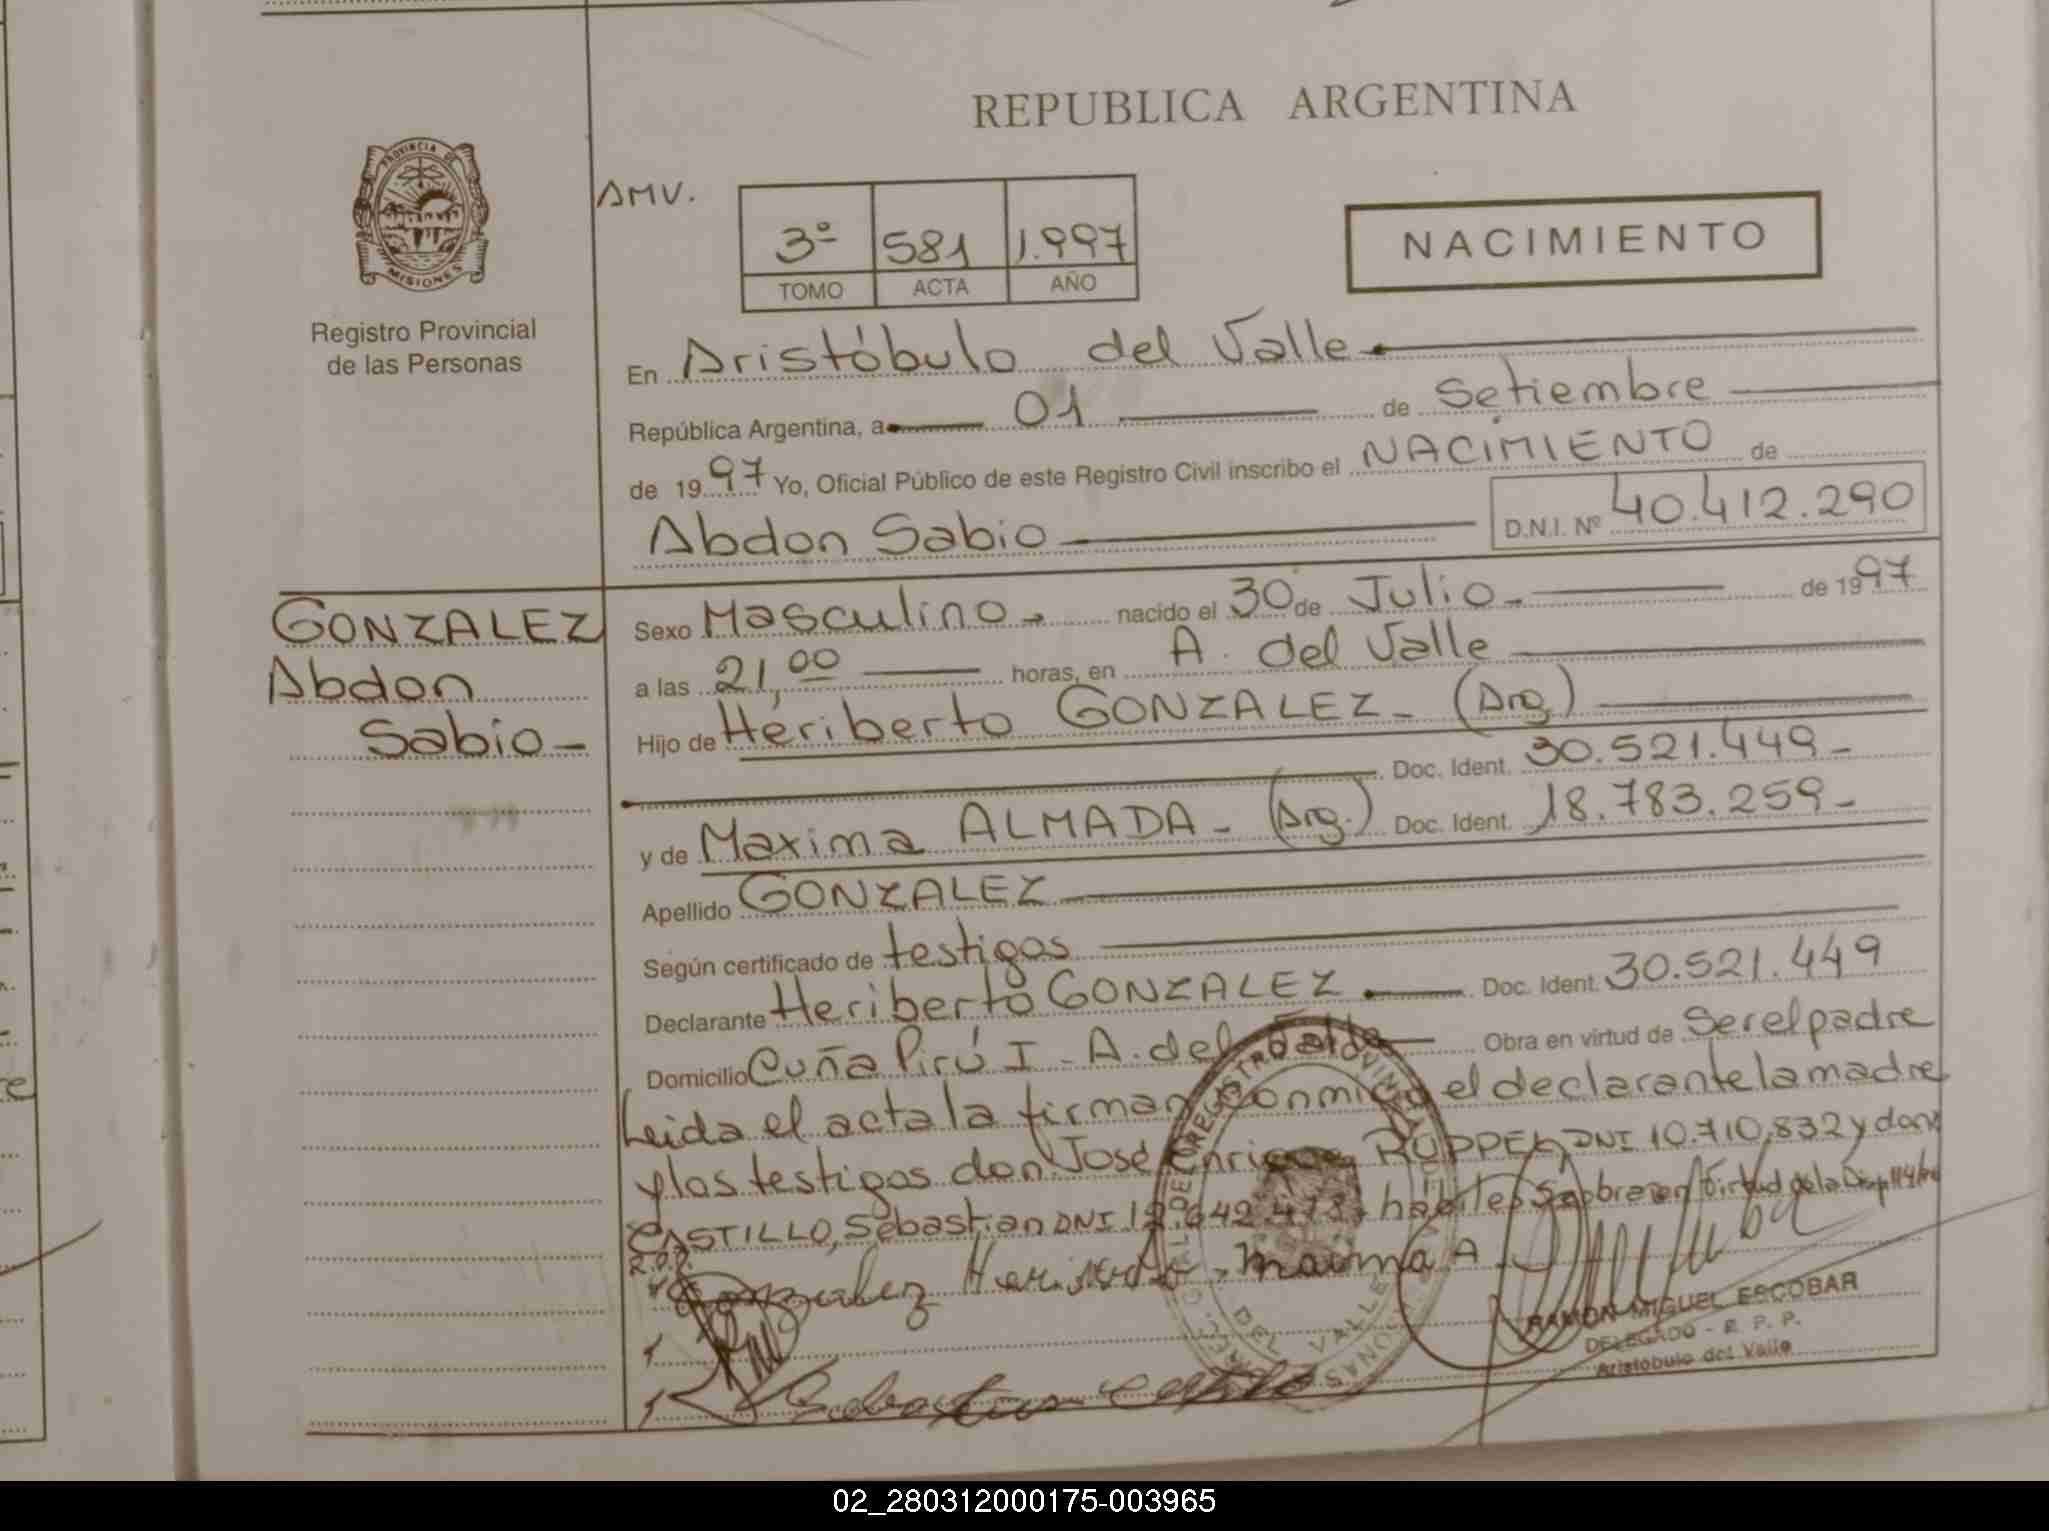 REPUBLICA ARGENTINA
PROVINCIA DE
MISIONES
Registro Provincial
de las Personas
AMV.
3º 581 1.997
TOMO ACTA AÑO
NACIMIENTO
En Aristóbulo del Valle
República Argentina, a 01 de Setiembre
de 1997 Yo, Oficial Público de este Registro Civil inscribo el NACIMIENTO de
Abdon Sabio D.N.I. Nº 40.412.290
GONZALEZ
Abdon
Sabio-
Sexo Masculino- nacido el 30 de Julio- de 1997
a las 21,00 horas, en A. del Valle
Hijo de Heriberto GONZALEZ- (Arg)
Doc. Ident. 30.521.449-
y de Maxima ALMADA- (Arg.) Doc. Ident. 18.783.259-
Apellido GONZALEZ
Según certificado de testigos
Declarante Heriberto GONZALEZ Doc. Ident. 30.521.449
Domicilio Cuña Pirú I - A. del Valle Obra en virtud de Ser el padre
Leida el acta la firman conmigo el declarante la madre
y los testigos don José Enrique RUPPEL, DNI 10.710.832 y don
CASTILLO, Sebastian DNI 12.642.478, habiles S/obra en virtud de la Disp
Gonzalez Heriberto maxima A
RAMON MIGUEL ESCOBAR
DELEGADO - R. P. P.
Aristobulo del Valle
Sebastian Castillo
DEL VALLE
02_280312000175-003965